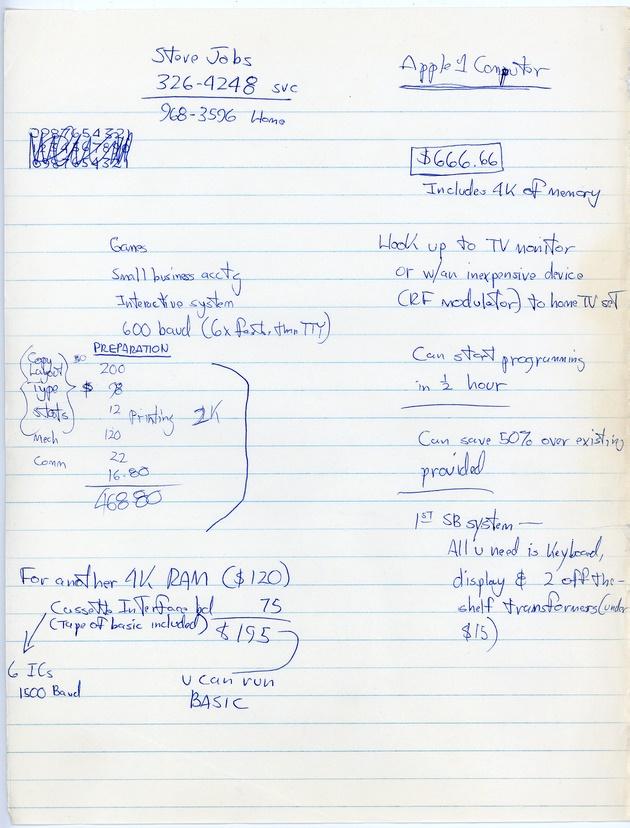 Steve Jobs
326-4248 svc
968-3596 Home
Apple 1 Computor
0987654321
0987654321
$666.66
Includes 4K of memory
Games
Small business acctg
Interactive system
600 baud (6x fast, than TTY)
Hook up to TV monitor
or w/an inexpensive device
(RF modulator) to home TV set
PREPARATION
Copy 80
Layout 200
Type $ 78
Stats 12 Printing 2K
Mech 120
Comm 22
16.80
468.80
Can start programming
in ½ hour
Can save 50% over existing
provided
1ST SB system —
All u need is Keyboard,
display & 2 off-the-
shelf transformers (under
$15)
For another 4K RAM ($120)
Cassette Interface bd 75
(Tape of basic included) $195
6 ICs
1500 Baud
u can run
BASIC